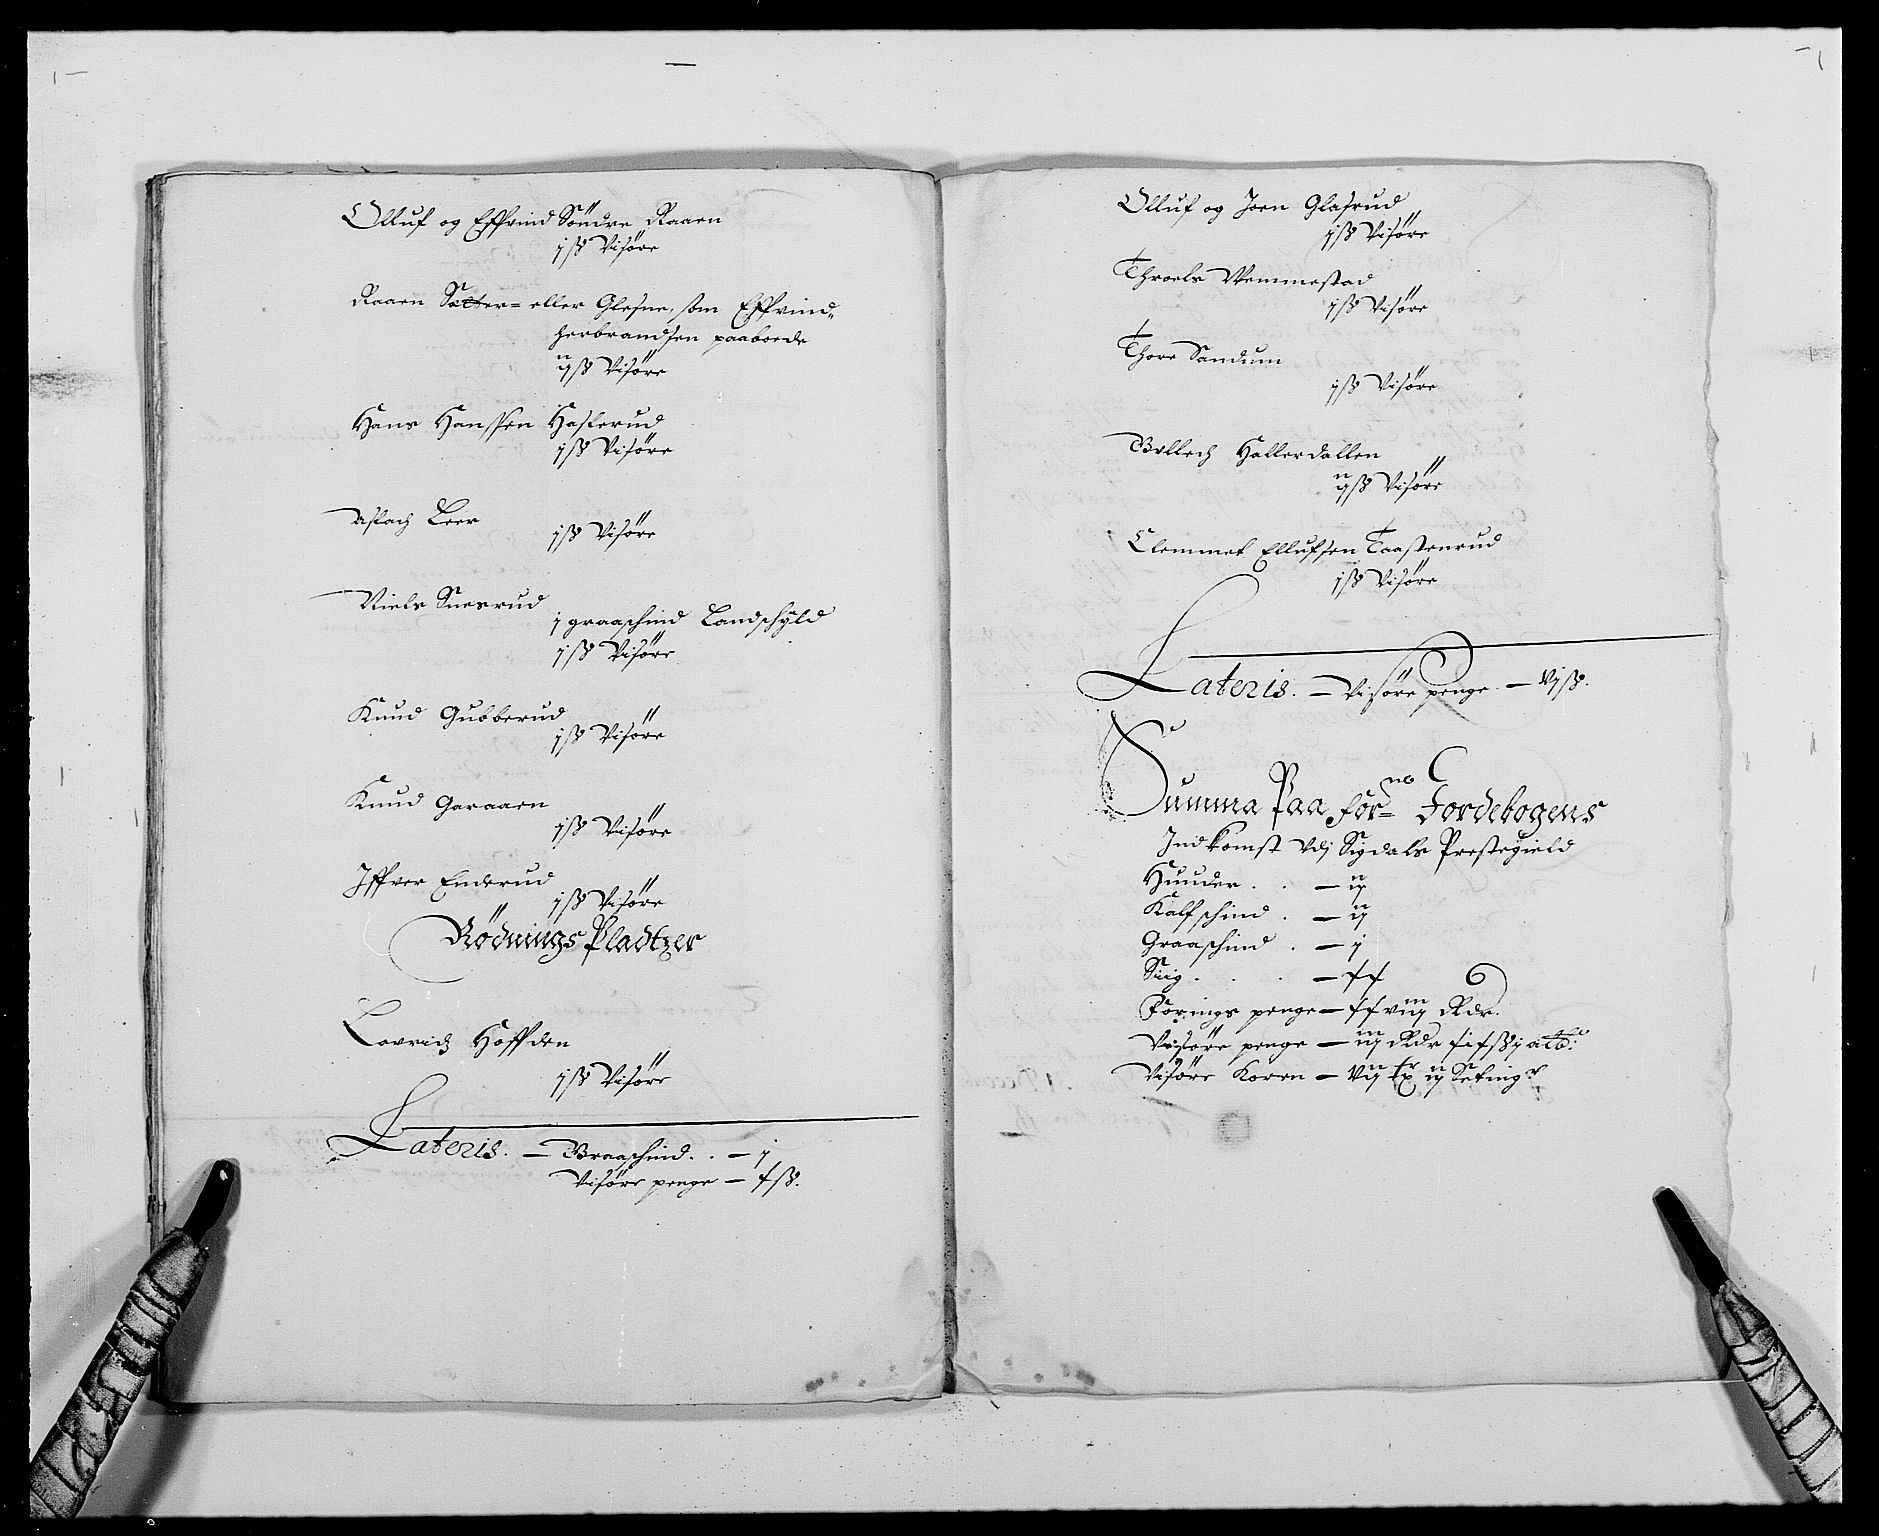 Olluf og Effvind Söndre Raaen
j ß Visöre
Raaen Sætter- eller Glesne, som Effvind
herbrandsen paaboede
ij ß Visöre
Hans Hanssen Haslerud
j ß Visöre
Aslach Leer
j ß Visöre
Niels Snesrud
j graaschind Landschÿld
j ß Visöre
Knud Gubberud
j ß Visöre
Knud Garaaen
j ß Visöre
Iffver Enderud
j ß Visöre
Rödnings Pladtzer
Lavridz Hoffden
j ß Visöre
Lateris. — Graaschind . . — j
Visöre penge — x ß.
Olluf og Joen Glasrud
j ß Visöre
Throels Wemmestad
j ß Visöre
Thore Sandum
j ß Visöre
Gullech Hallerdallen
ij ß Visöre
Clemmet Ellufsen Taastenrud
j ß Visöre
Lateris. — Visöre penge — vj ß.
Summa Paa for.ne Jordebogens
Indkomst Vdj Sigdals Prestegield
Huuder . . — ij
Kalfschind . — ij
Graaschind . — j
. . . — xx
Förings penge — xxviij Rdr.
Visöre penge — iij Rdr
Visöre Koren — vij ij Setingr